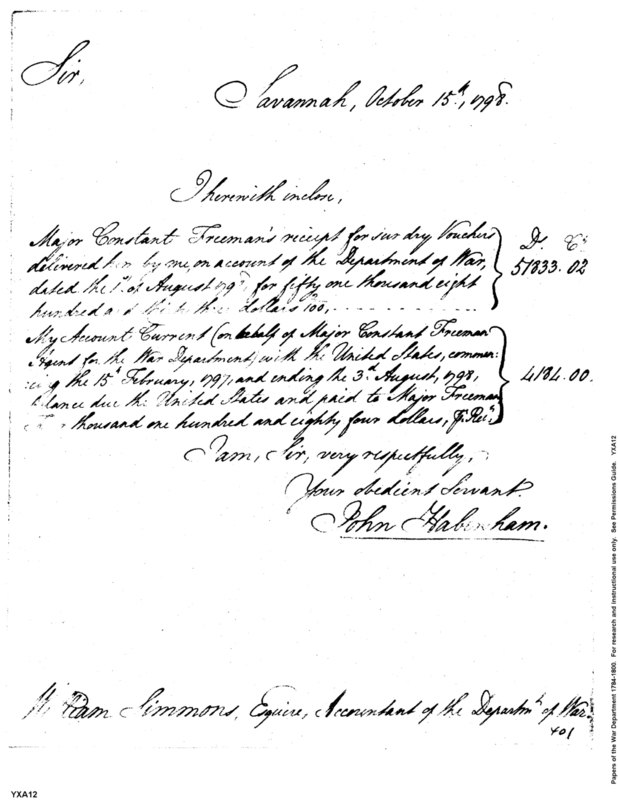 Sir,
Savannah, October 15th, 1798.
I herewith inclose,
Major Constant Freeman's receipt for sundry Vouchers
delivered him by me, on account of the Department of War,
dated the 1st of August 1798, for fifty one thousand eight
hundred and thirty three dollars 2/100,
Ds. Cs.
51833.02
My Account Current (on behalf of Major Constant Freeman
Agent for the War Department) with the United States, commen:
cing the 15th February, 1797, and ending the 3rd August, 1798,
balance due the United States and paid to Major Freeman
Four thousand one hundred and eighty four dollars,
4184.00.
I am, Sir, very respectfully,
Your obedient Servant.
John Habersham.
William Simmons, Esquire, Accountant of the Departmt of War.
401
YXA12
Papers of the War Department 1784-1800. For research and instructional use only. See Permissions Guide. YXA12